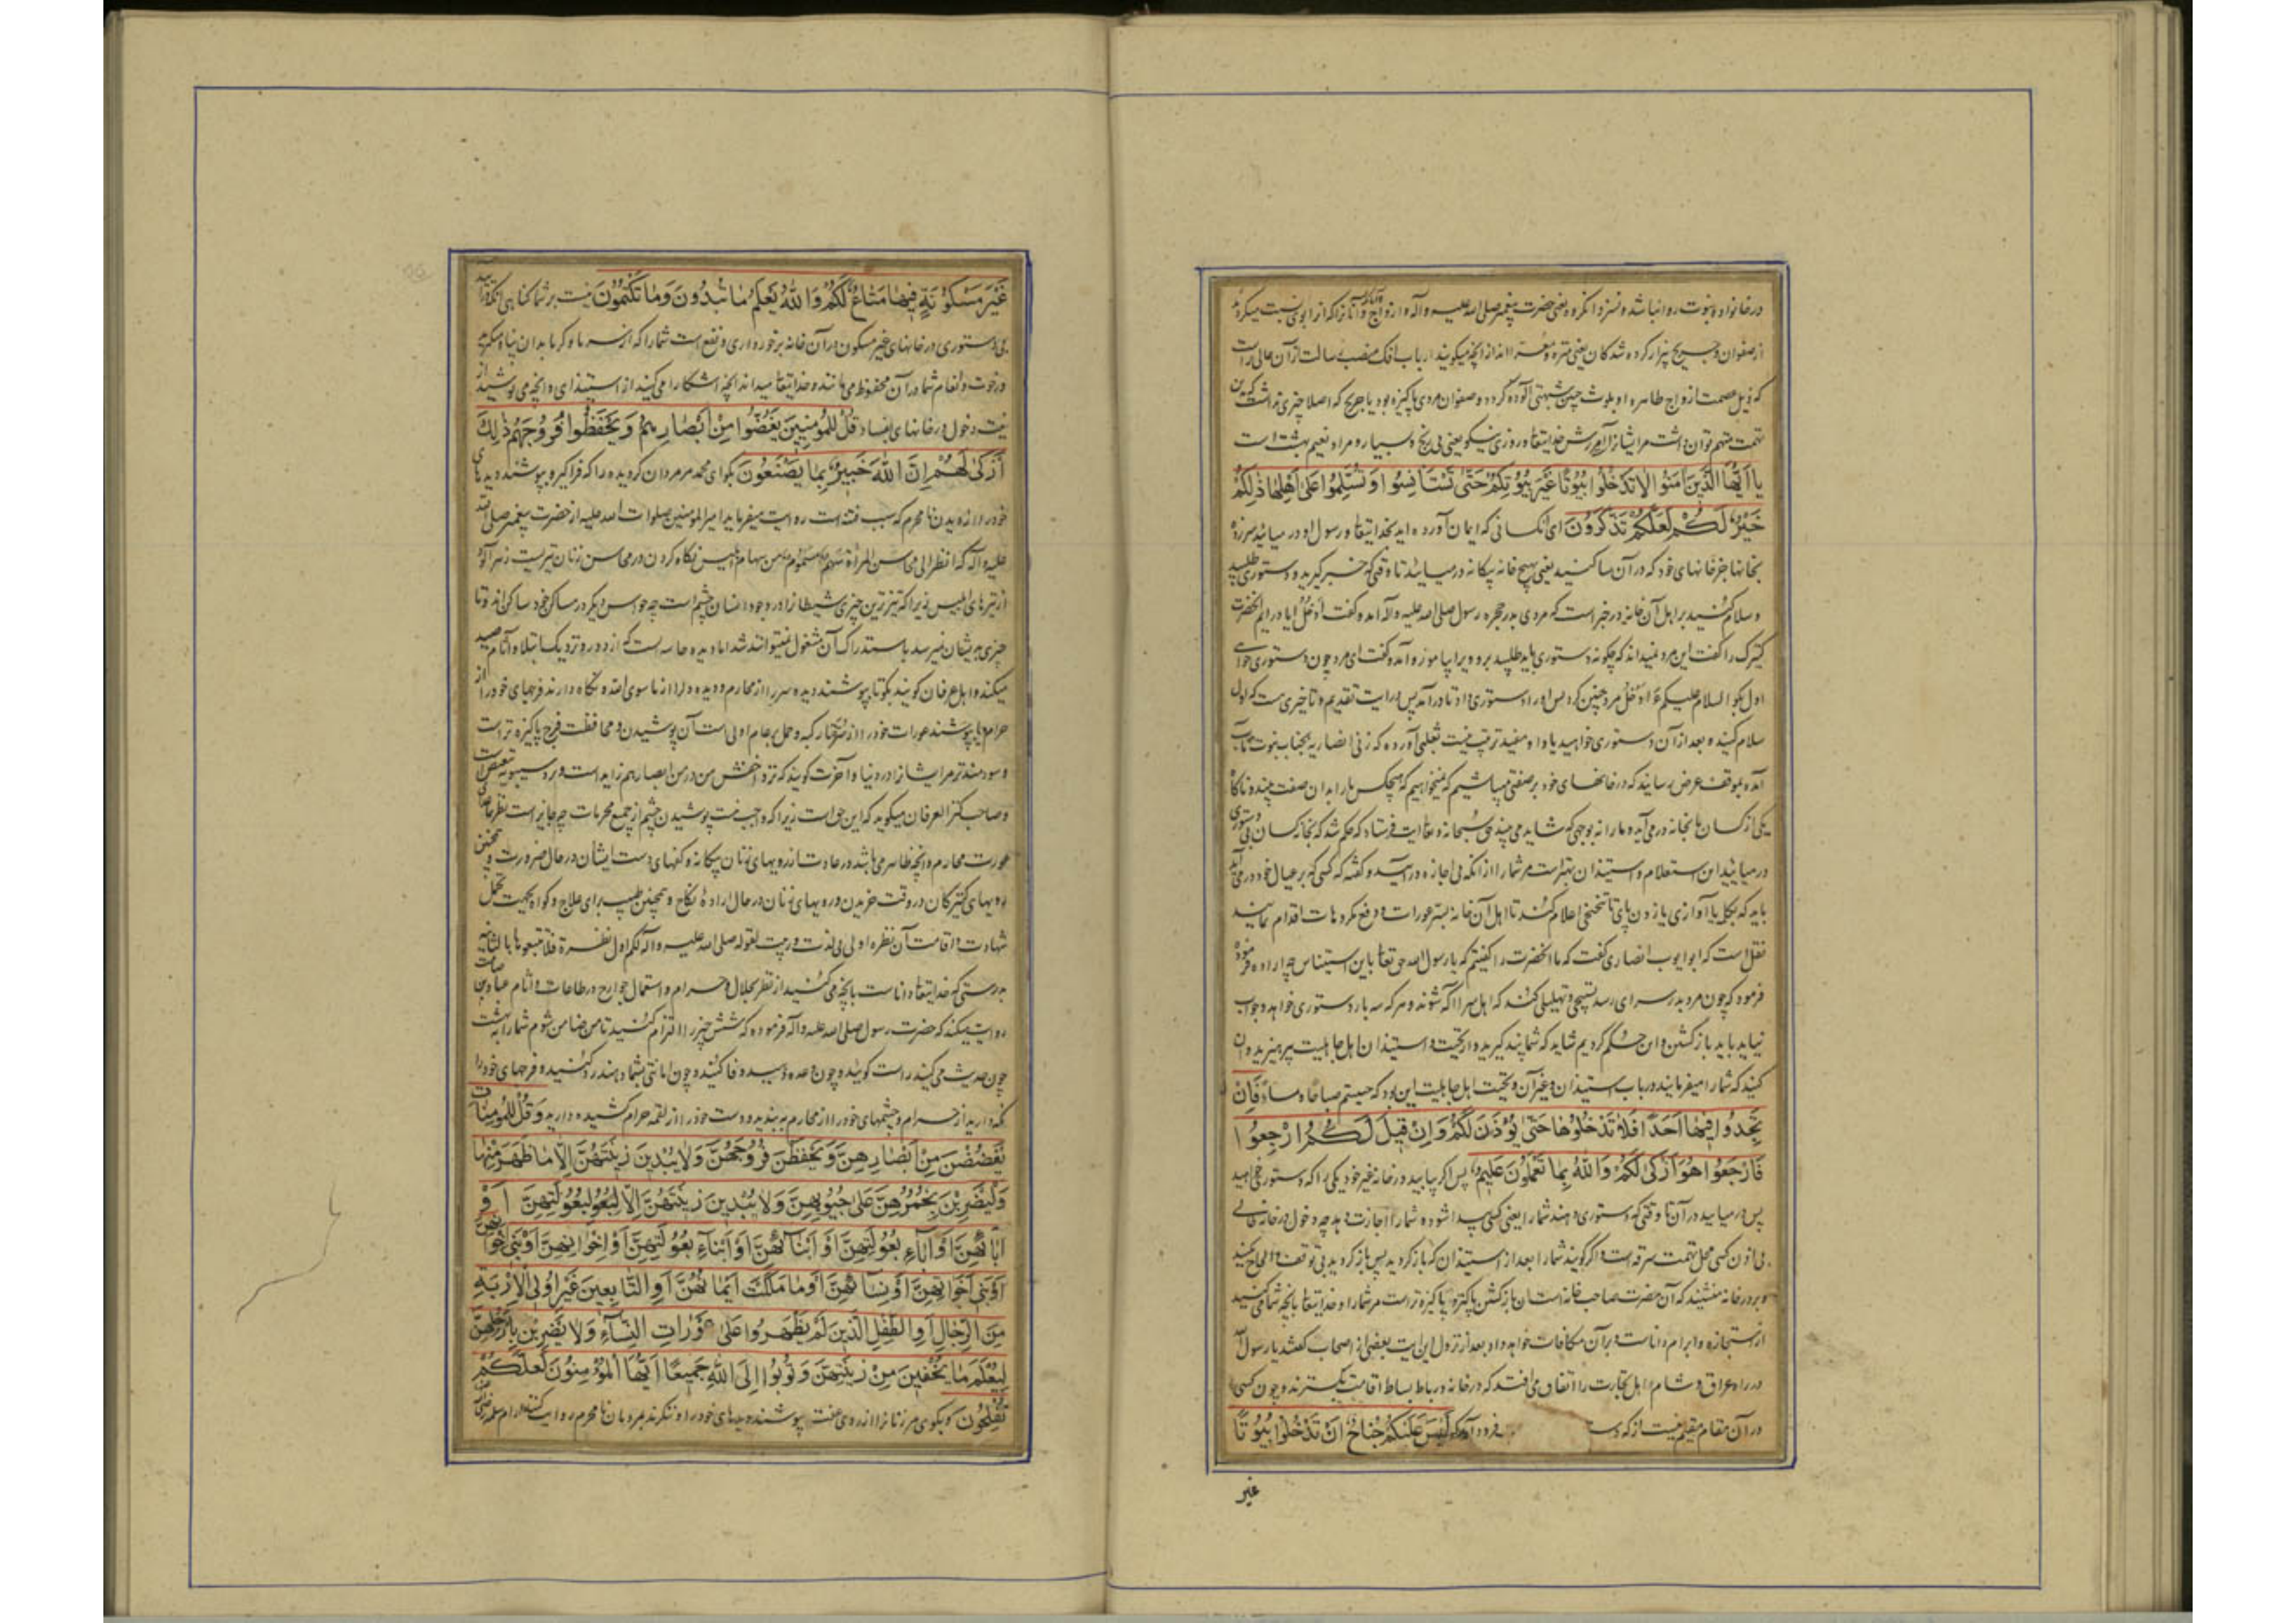 در خانواده نبوت روا نباشد و نسزد انکروه یعنی حضرت پیغمبر صلی الله علیه و آله و ازواج و آنانرا که از ابوی نسبت میکرد
از صفوان و جریح بیزار کرده شدکان یعنی منزه و معرا اند از آنچه میکویند ارباب افک منصب رسالت از آن عالی تر است
که ذیل عصمت ازواج طاهره او بلوث چنین شبهتی آلوده کردد و صفوان مردی پاکیزه بود یا جریح که اصلا چیزی نداشت که باین
تهمت متهم توان داشت مر ایشانراست آمرزش خدایتعالی و روزی نیکو یعنی بی رنج و بسیار و مراد نعیم بهشت است
یا ایها الذین امنوا لا تدخلوا بیوتا غیر بیوتکم حتی تستانسوا و تسلموا علی اهلها ذلکم
خیر لکم لعلکم تذکرون ای کسانی که ایمان آورده اید بخدایتعالی و رسول او در میائید
بخانها جز خانهای خود که در آن ساکنید یعنی بهیچ خانه بیکانه درمیائید تا وقتی که خبر کیرید و دستوری طلبید
و سلام کنید بر اهل آن خانه در خبر است که مردی بدر حجره رسول صلی الله علیه و آله آمده گفت ادخل ایا درایم آنحضرت
کنیزک را گفت این مرد نمیداند که چگونه دستوری باید طلبید برو ویرا بیاموز و آمده گفت ای مرد چون دستوری خواهی
اول بگو السلام علیکم ءادخل مرد چنین کرد پس او را دستوری داد تا درآمد پس در ایت تقدیم و تاخیری هست که اول
سلام کنید و بعد از آن دستوری خواهید یا واو مفید ترتیب نیست ثعلبی آورده که زنی انصاریه بجناب نبوت مآب
آمده بموقف عرض رسانید که در خانهای خود بر صفتی میباشیم که نمیخواهیم که هیچکس ما را بدان صفت بیند و ناگاه
یکی از کسان ما بخانه در می آید و ما را نه بوجهی که شاید می بیند حق سبحانه و تعالی ایت فرستاد که حکم شد که بخانه کسان بی دستوری
در میایید این استعلام و استیذان بهتر است مر شما را از آنکه بی اجازه درآیید و گفته که کسی که بر عیال خود در می آید
باید که بکلامی یا آوازی یا زدن پای یا تنحنحی اعلام کند تا اهل آن خانه بستر عورات و دفع مکروهات اقدام نمایند
نقل است که ابو ایوب انصاری گفت که ما آنحضرت را گفتیم که یا رسول الله حق تعالی باین استیناس چه اراده فرموده
فرمود که چون مرد بدر سرای رسد تسبیحی و تهلیلی کند که اهل سرا آگه شوند و هر که سه بار دستوری خواهد و جواب
نیاید باید بازگشتن و این حکم کردیم شاید که شما پند گیرید و از تحیت و استیذان اهل جاهلیت بپرهیزید و آن
کنید که شما را میفرمایند در باب استیذان و غیر آن و تحیت اهل جاهلیت این بود که حییتم صباحا و مساء فان
تجدوا فیها احدا فلا تدخلوها حتی یؤذن لکم و ان قیل لکم ارجعوا
فارجعوا هو ازکی لکم و الله بما تعملون علیم پس اگر نیابید در خانه غیر خود یکی را که دستوری خواهید
پس درمیایید در آن تا وقتی که دستوری دهند شما را یعنی کسی پیدا شود و شما را اجازت دهد چه دخول در خانه خالی
بی اذن کسی محل تهمت سرقه است و اگر گویند شما را بعد از استیذان که بازگردید پس بازگردید بی توقف و الحاح مکنید
و بر در خانه منشینید که آن حضرت صاحب خانه است آن بازگشتن پاکتر و پاکیزه تر است مر شما را و خدایتعالی بآنچه شما میکنید
از استجازه و ابرام داناست و بر آن مکافات خواهد داد بعد از نزول این ایت بعضی از اصحاب گفتند یا رسول الله
در راه عراق و شام اهل تجارت را اتفاق می افتد که در خانه و رباط بساط اقامت بگسترند و چون کسی
در آن مقام مقیم نیست از که دس فرود آمد که لیس علیکم جناح ان تدخلوا بیوتا
غیر
غیر مسکونة فیها متاع لکم و الله یعلم ما تبدون و ما تکتمون نیست بر شما گناهی آنکه درآیید
بی دستوری در خانهای غیر مسکون در آن خانه برخورداری و نفع است شما را که از سرما و گرما بدان پناه میگیرید
و رخوت و انعام شما در آن محفوظ می ماند و خدایتعالی میداند آنچه آشکارا میکنید از استیذان و آنچه می پوشید از
نیت دخول در خانهای بفساد قل للمؤمنین یغضوا من ابصارهم و یحفظوا فروجهم ذلک
ازکی لهم ان الله خبیر بما یصنعون بگو ای محمد مر مردان گرویده را که فرا گیرند و بپوشند دیدهای
خود را از دیدن نامحرم که سبب فتنه است روایت میفرماید امیرالمؤمنین صلوات الله علیه از حضرت پیغمبر صلی الله
علیه و آله که النظر الی محاسن المرأة سهم مسموم من سهام ابلیس نگاه کردن در محاسن زنان تیریست زهر آلود
از تیرهای ابلیس زیرا که تیزترین چیزی شیطانرا در وجود انسان چشم است چه حواس دیگر در مساکن خود ساکن اند و تا
چیزی بدیشان نمیرسد باستدراک آن مشغول نمیتوانند شد اما دیده حاسه ایست که از دور و نزدیک ابتلا و آثام صید
میکند و اهل عرفان گویند بگو تا بپوشند دیده سر را از محارم و دیده دل را از ما سوی الله و نگاه دارند فرجهای خود را از
حرام یا بپوشند عورات خود را از و حمل بر عام اولی است آن پوشیدن و محافظت فرج پاکیزه تر است
و سودمندتر مر ایشانرا در دنیا و آخرت گویند که نزد اخفش من در من ابصارهم زاید است و نزد سیبویه تبعیض است
و صاحب کنز العرفان میگوید که این حق است زیرا که واجب نیست پوشیدن چشم از جمیع محرمات چه جایز است نظر ما عدای
عورت محارم و آنچه ظاهر می باشد در عادت از رویهای زنان بیگانه و کفهای دست ایشان در حال ضرورت و همچنین
رویهای کنیزکان در وقت خریدن و رویهای زنان در حال اراده نکاح و همچنین طبیب برای علاج و گواه بجهت تحمل
شهادت و اقامت آن نظره اولی بی لذت و ریبت لقوله صلی الله علیه و آله لکم اول نظرة فلا تتبعوها بالثانیه
بدرستی که خدایتعالی داناست بآنچه می کنید از نظر بحلال و حرام و استعمال جوارح در طاعات و آثام عباده بن صامت
روایت میکند که حضرت رسول صلی الله علیه و آله فرموده که شش چیز را التزام کنید تا من ضامن شوم شما را بهشت
چون حدیث می کنید راست گوئید و چون وعده دهید وفا کنید و چون امانتی بشما دهند رد کنید و فرجهای خود را
نگه دارید از حرام و چشمهای خود را از محارم ببندید و دست خود را از لقمه حرام کشیده دارید و قل للمؤمنات
یغضضن من ابصارهن و یحفظن فروجهن و لا یبدین زینتهن الا ما ظهر منها
ولیضربن بخمرهن علی جیوبهن و لا یبدین زینتهن الا لبعولتهن او
ابائهن او اباء بعولتهن او ابنائهن او ابناء بعولتهن او اخوانهن او بنی اخوانهن
او بنی اخواتهن او نسائهن او ما ملکت ایمانهن او التابعین غیر اولی الاربة
من الرجال او الطفل الذین لم یظهروا علی عورات النساء و لا یضربن بارجلهن
لیعلم ما یخفین من زینتهن و توبوا الی الله جمیعا ایها المؤمنون لعلکم
تفلحون و بگوی مر زنانرا از روی عفت بپوشند دیدهای خود را و ننگرند بمردان نامحرم روایت کنند از ام سلمه رضی